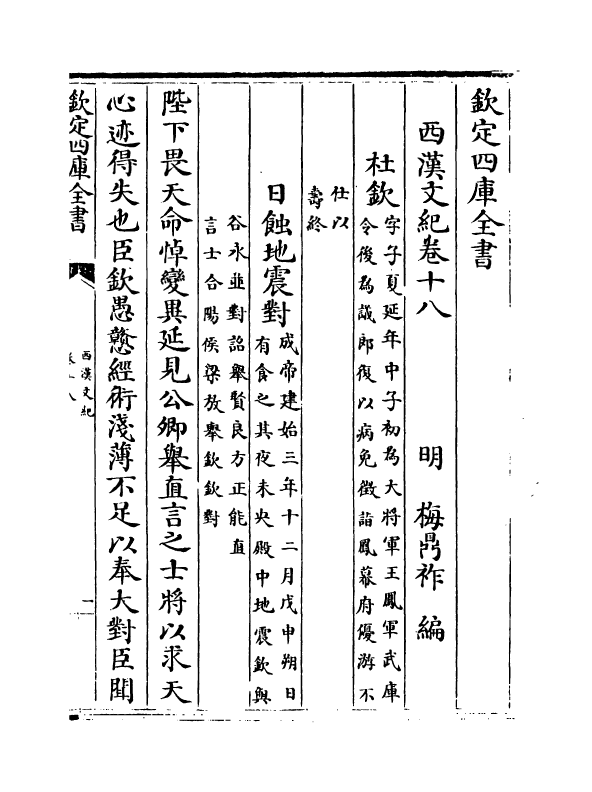 欽定四庫全書
西漢文紀卷十八
明 梅鼎祚 編
杜欽
字子夏延年中子初為大將軍王鳳軍武庫
令後為議郎復以病免徵詣鳳幕府優游不
仕以
壽終
日蝕地震對
成帝建始三年十二月戊申朔日
有食之其夜未央殿中地震欽與
谷永並對詔舉賢良方正能直
言士合陽侯梁放舉欽欽對
陛下畏天命悼變異延見公卿舉直言之士將以求天
心迹得失也臣欽愚戇經術淺薄不足以奉大對臣聞
欽定四庫全書
西漢文紀
卷十八
一